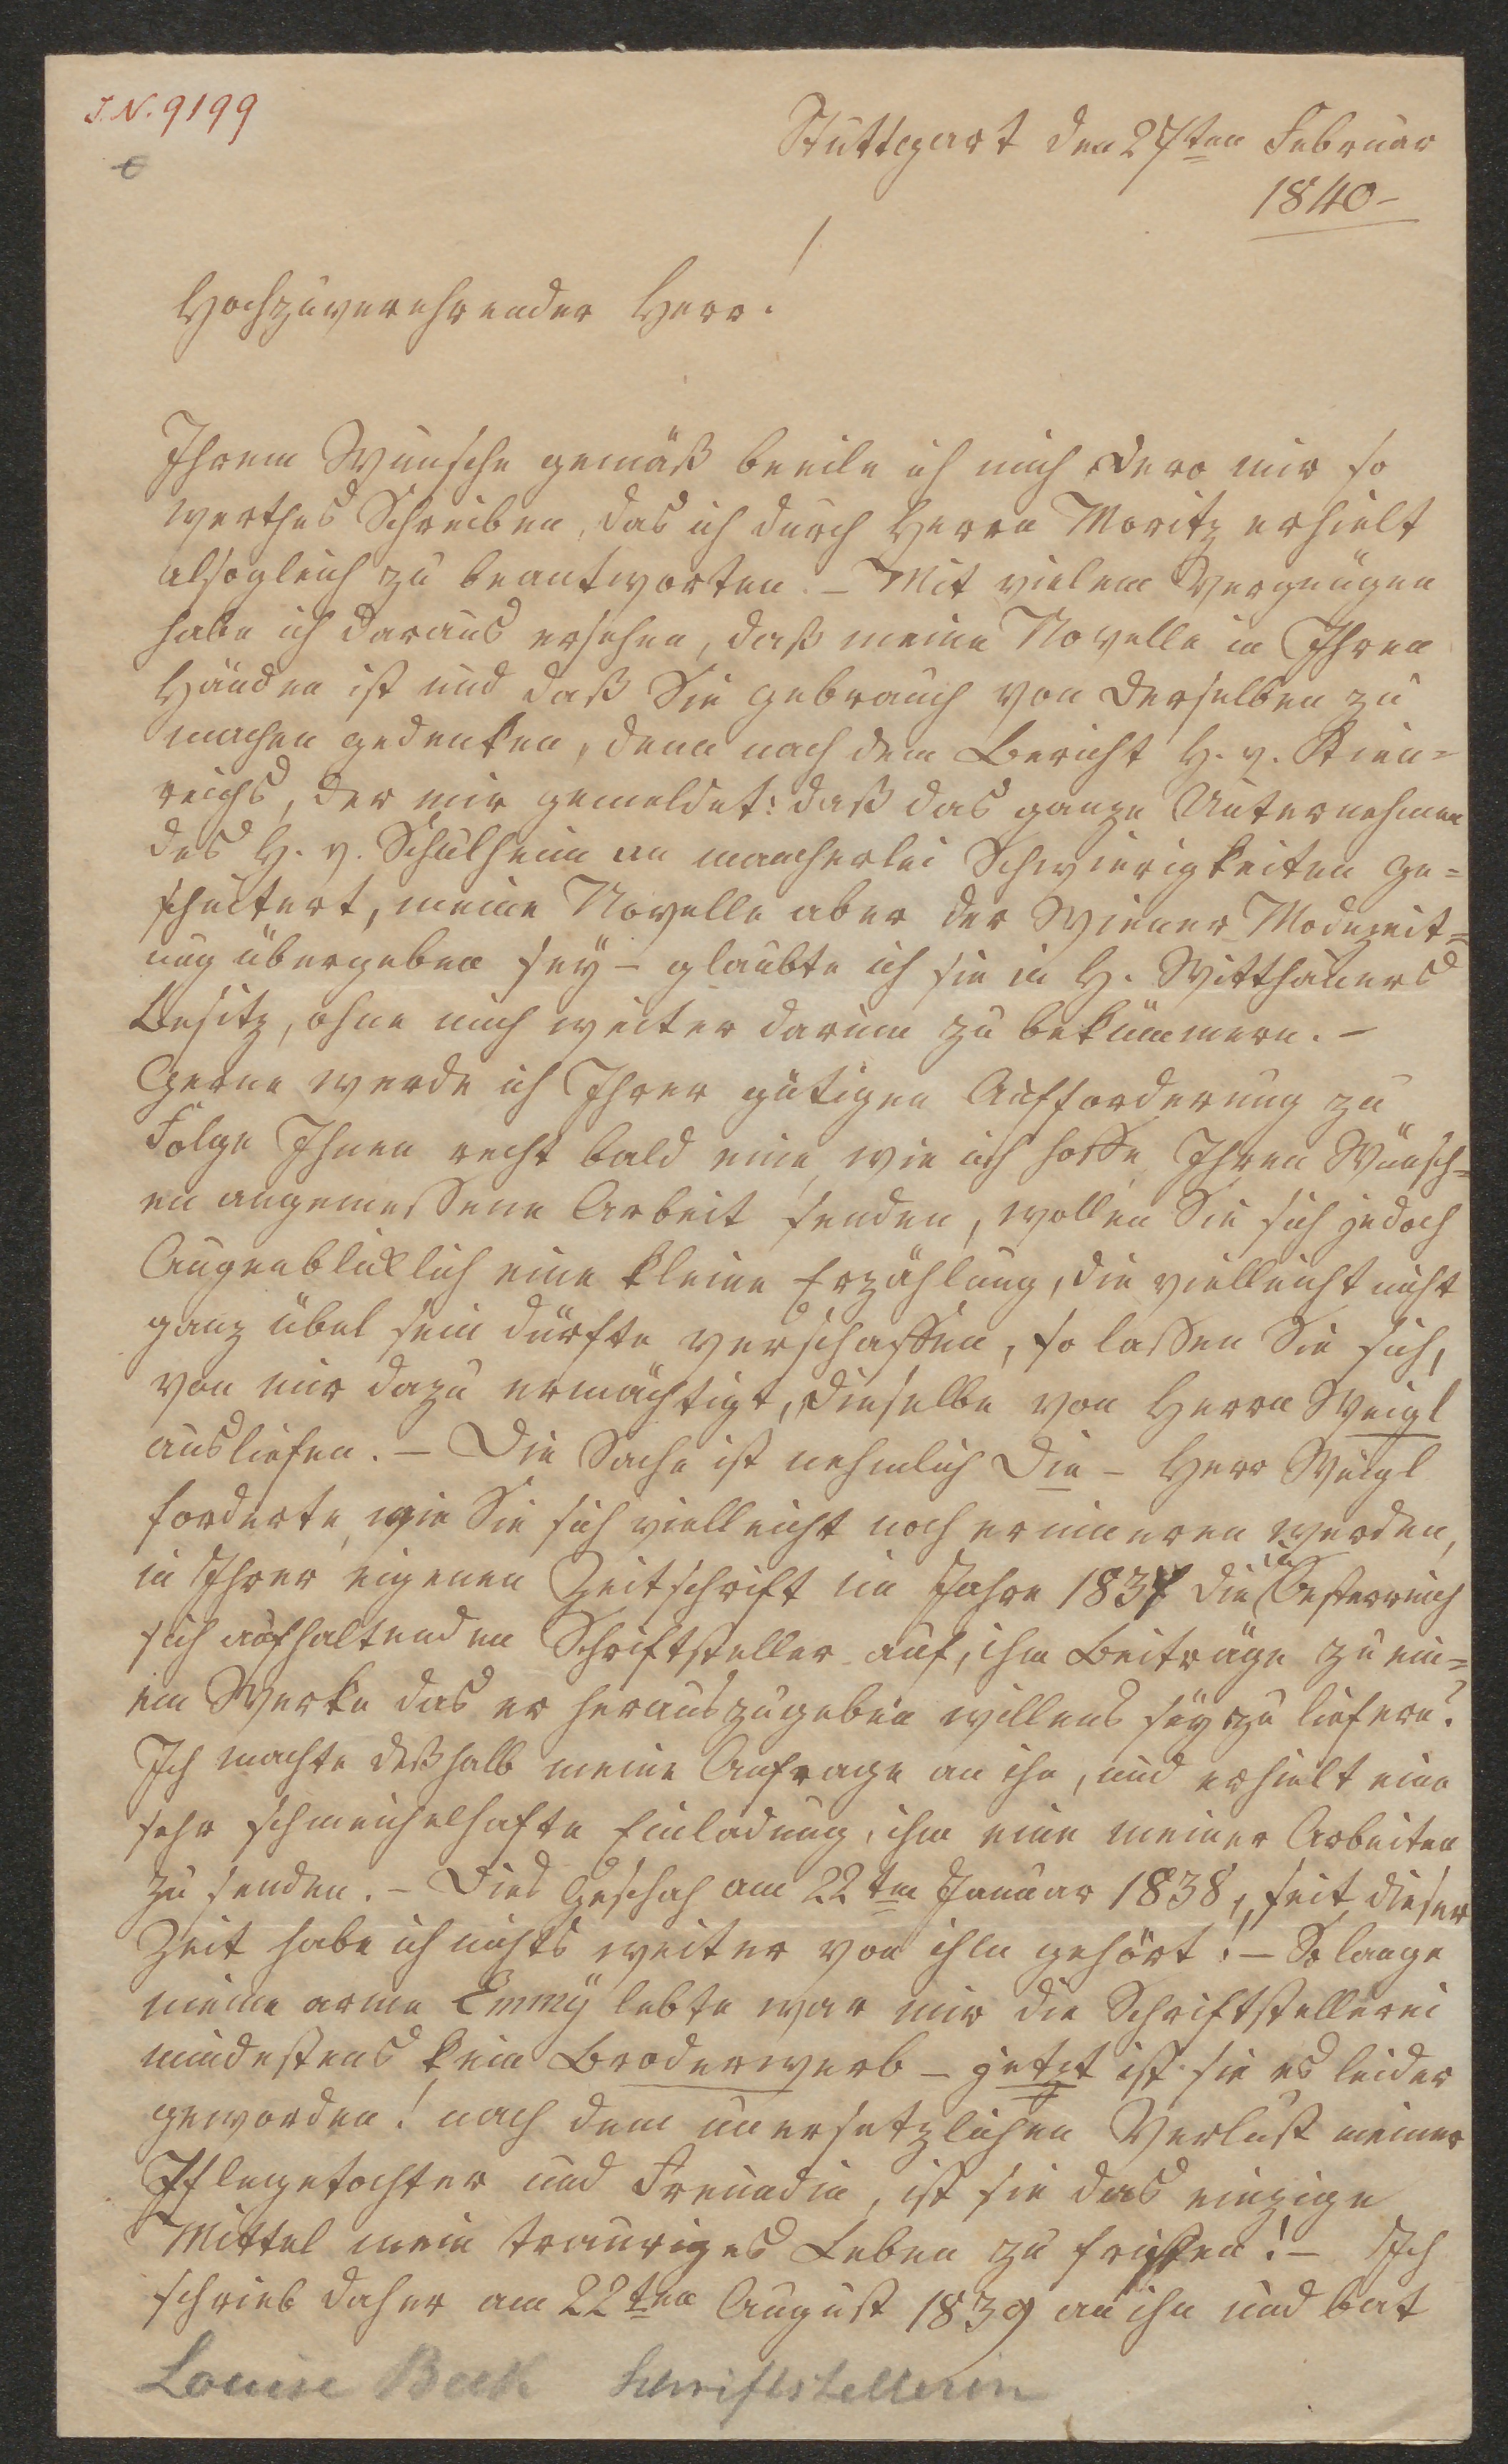 I.N. 9199
Stuttgart den 27ten Februar
1840-
Hochzuverehrender Herr!
Ihrem Wunsche gemäß beeile ich mich dero mir so
werthes Schreiben, das ich durch Herrn Moritz erhielt
alsogleich zu beantworten. - Mit vielem Vergnügen
habe ich daraus ersehen, daß meine Novelle in Ihren
Händen ist und daß Sie gebrauch von derselben zu
machen gedenken, denn nach dem Bericht H. v. Kien=
reichs, der mir gemeldet: daß das ganze Unternehmen
des H. v. Schulheim an mancherlei Schwierigkeiten ge=
scheitert, meine Novelle aber der Wiener Modezeit=
ung übergeben seÿ - glaubte ich sie in H. Witthauers
Besitz, ohne mich weiter darum zu bekümmern. -
Gerne werde ich Ihrer gütigen Aufforderung zu
Folge Ihnen recht bald eine, wie ich hoffe, Ihren Wünsch=
en angemessene Arbeit senden, wollen Sie sich jedoch
Augenbliklich eine kleine Erzählung, die vielleicht nicht
ganz übel sein dürfte verschaffen, so lassen Sie sich,
von mir dazu ermächtigt, dieselbe von Herrn Weigl
ausliefern. - Die Sache ist nehmlich die - Herr Weigl
forderte, wie Sie sich vielleicht noch erinneren werden,
in Ihrer eigenen Zeitschrift im Jahre 1837 die in Oesterreich
sich aufhaltenden Schriftsteller auf, ihm Beiträge zu ein=
em Werke das er herauszugeben willens seÿ zu liefern.
Ich machte deßhalb meine Anfrage an ihn, und erhielt eine
sehr schmeichelhafte Einladung, ihm eine meiner Arbeiten
zu senden. - Dies Geschah am 22ten Januar 1838, seit dieser
Zeit habe ich nichts weiter von ihm gehört! - So lange
meine arme Emmÿ lebte war mir die Schriftstellerei
mindestens kein Broderwerb - jetzt ist sie es leider
geworden! nach dem unersetzlichen Verlust meiner
Pflegetochter und Freundin, ist sie das einzige
Mittel mein trauriges Leben zu fristen! - Ich
schrieb daher am 22ten August 1839 an ihn und bat
Louise Beck Schriftstellerin